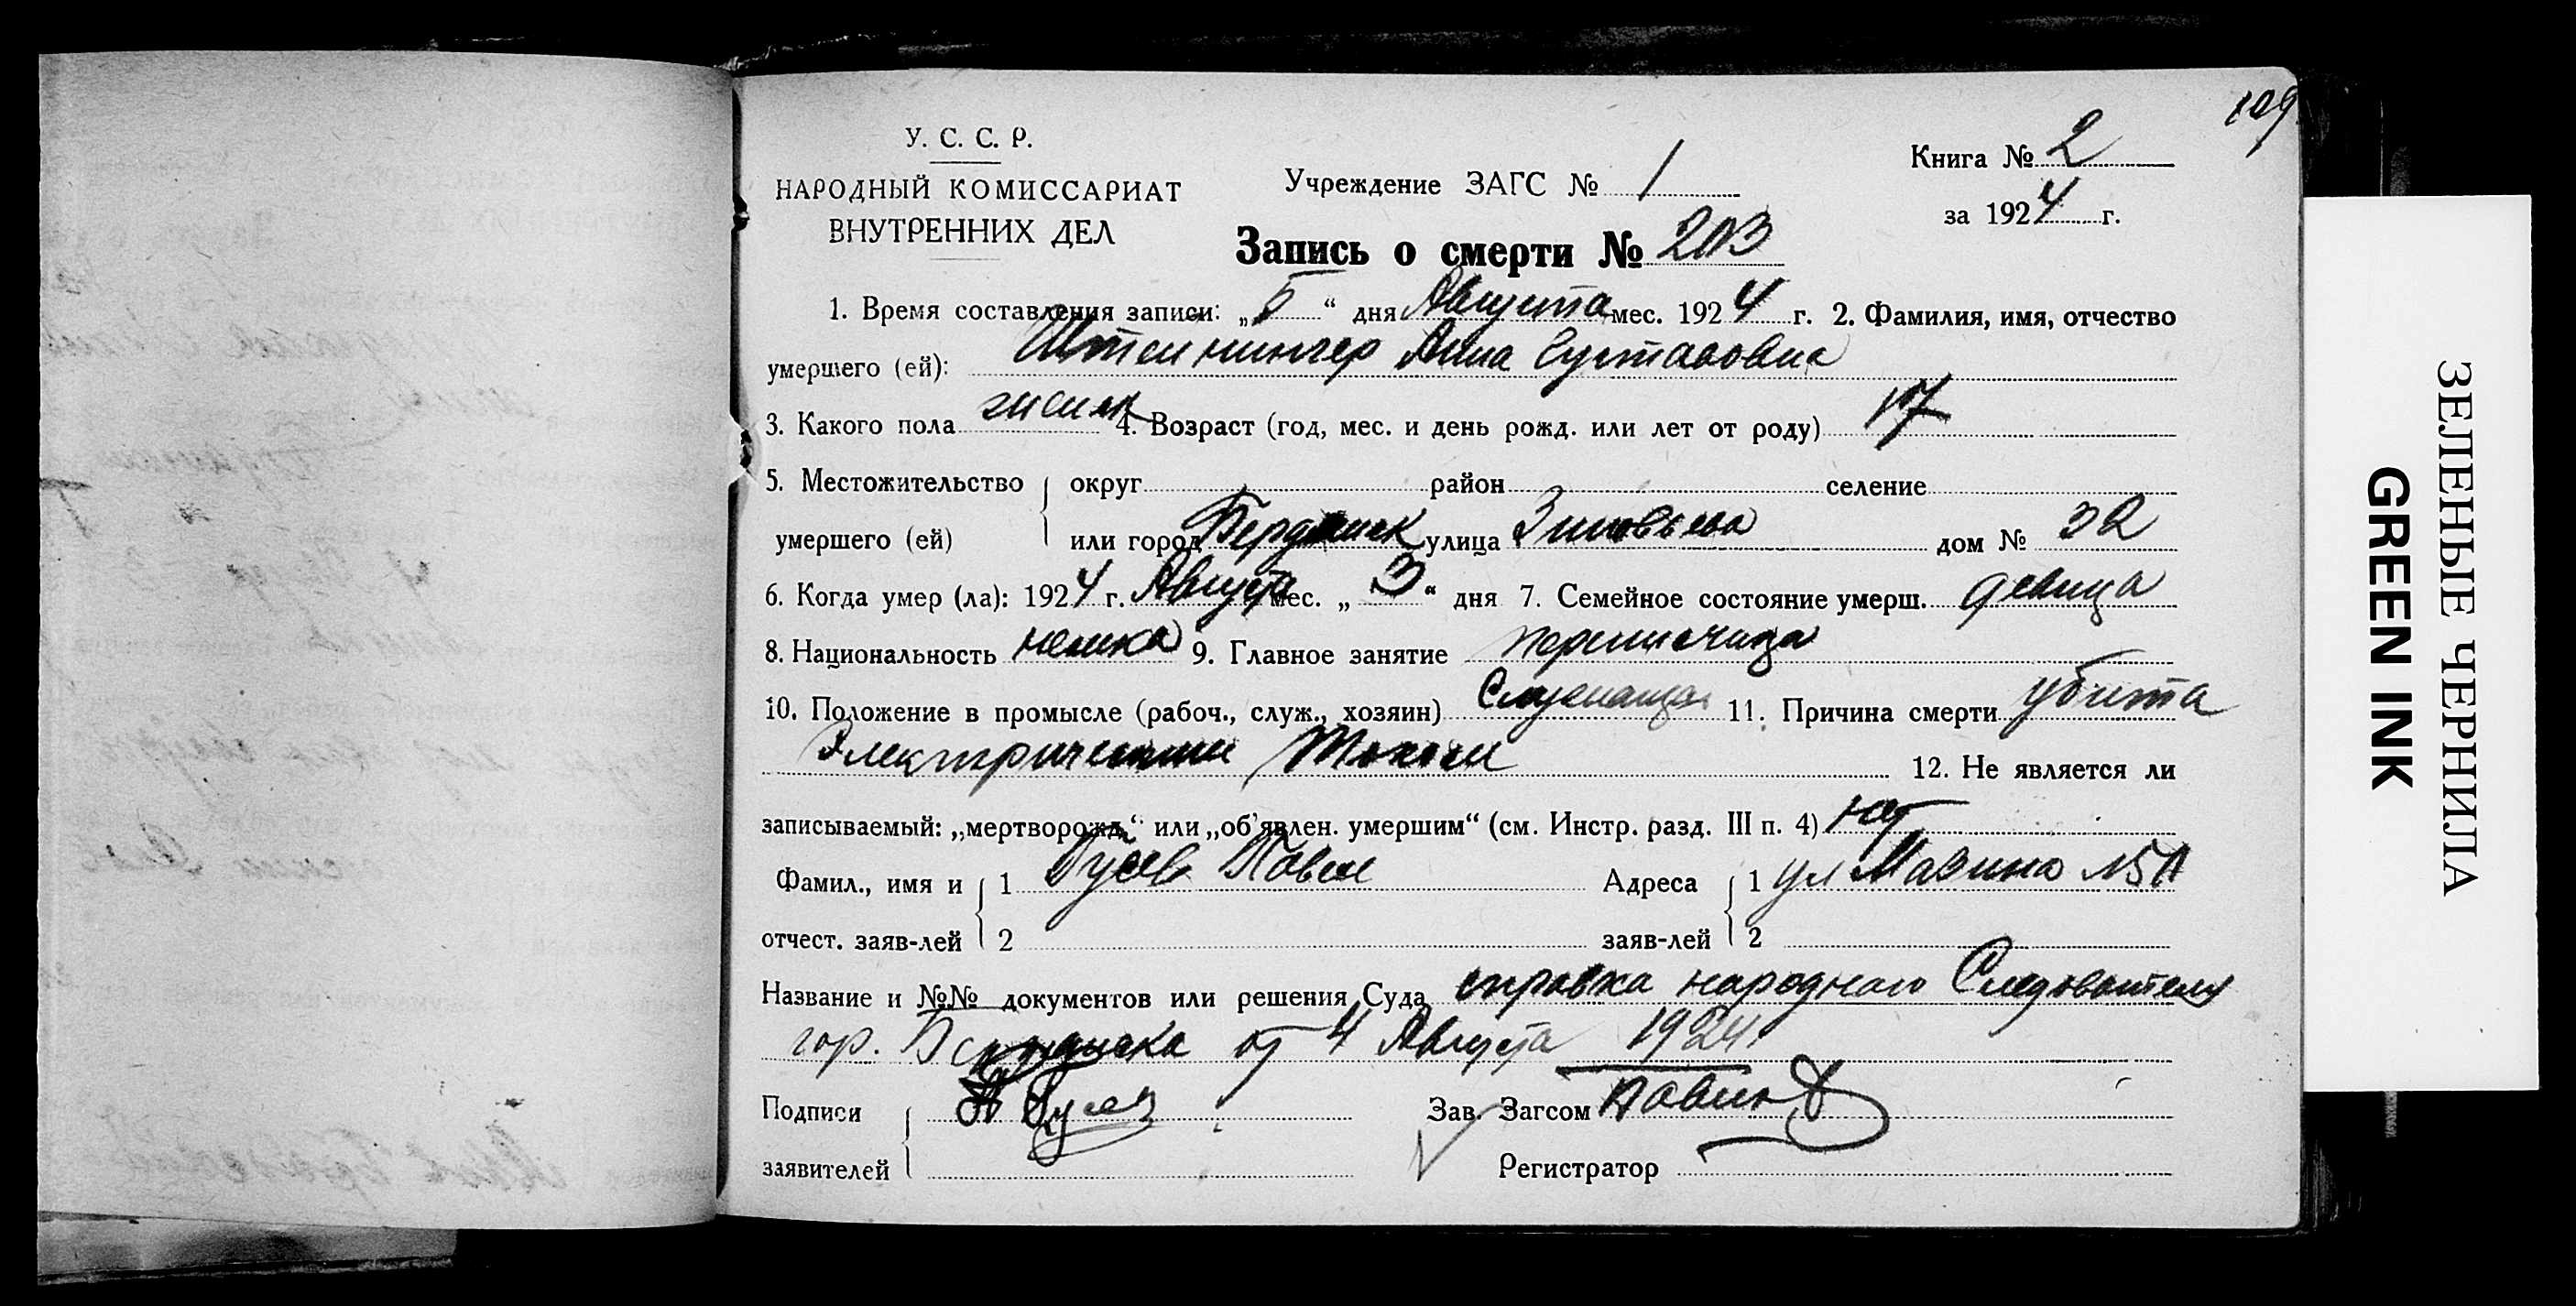 109
У. С. С. Р.
НАРОДНЫЙ КОМИССАРИАТ
ВНУТРЕННИХ ДЕЛ
Учреждение ЗАГС № 1
Книга № 2
за 1924 г.
Запись о смерти № 203
1. Время составления записи: „5“ дня Августа мес. 1924 г. 2. Фамилия, имя, отчество
умершего (ей): Штейнингер Анна Густавовна
3. Какого пола женск 4. Возраст (год, мес. и день рожд. или лет от роду) 17
5. Местожительство округ район селение
умершего (ей) или город Бердянск улица Зиновьева дом № 32
6. Когда умер (ла): 1924 г. Августа мес. „3“ дня 7. Семейное состояние умерш. девица
8. Национальность немка 9. Главное занятие
10. Положение в промысле (рабоч., служ., хозяин) Служащая 11. Причина смерти убита
Электрическим Током 12. Не является ли
записываемый: „мертворожд.“ или „об’явлен. умершим“ (см. Инстр. разд. III п. 4) нет
Фамил., имя и 1 Гусев Павел Адреса 1 ул Мазина №5А
отчест. заяв-лей 2 заяв-лей 2
Название и №№ документов или решения Суда справка народного Следователя
гор. Бердянска от 4 Августа 1924
Подписи П Гусев Зав. Загсом
заявителей Регистратор
ЗЕЛЕНЫЕ ЧЕРНИЛА
GREEN INK